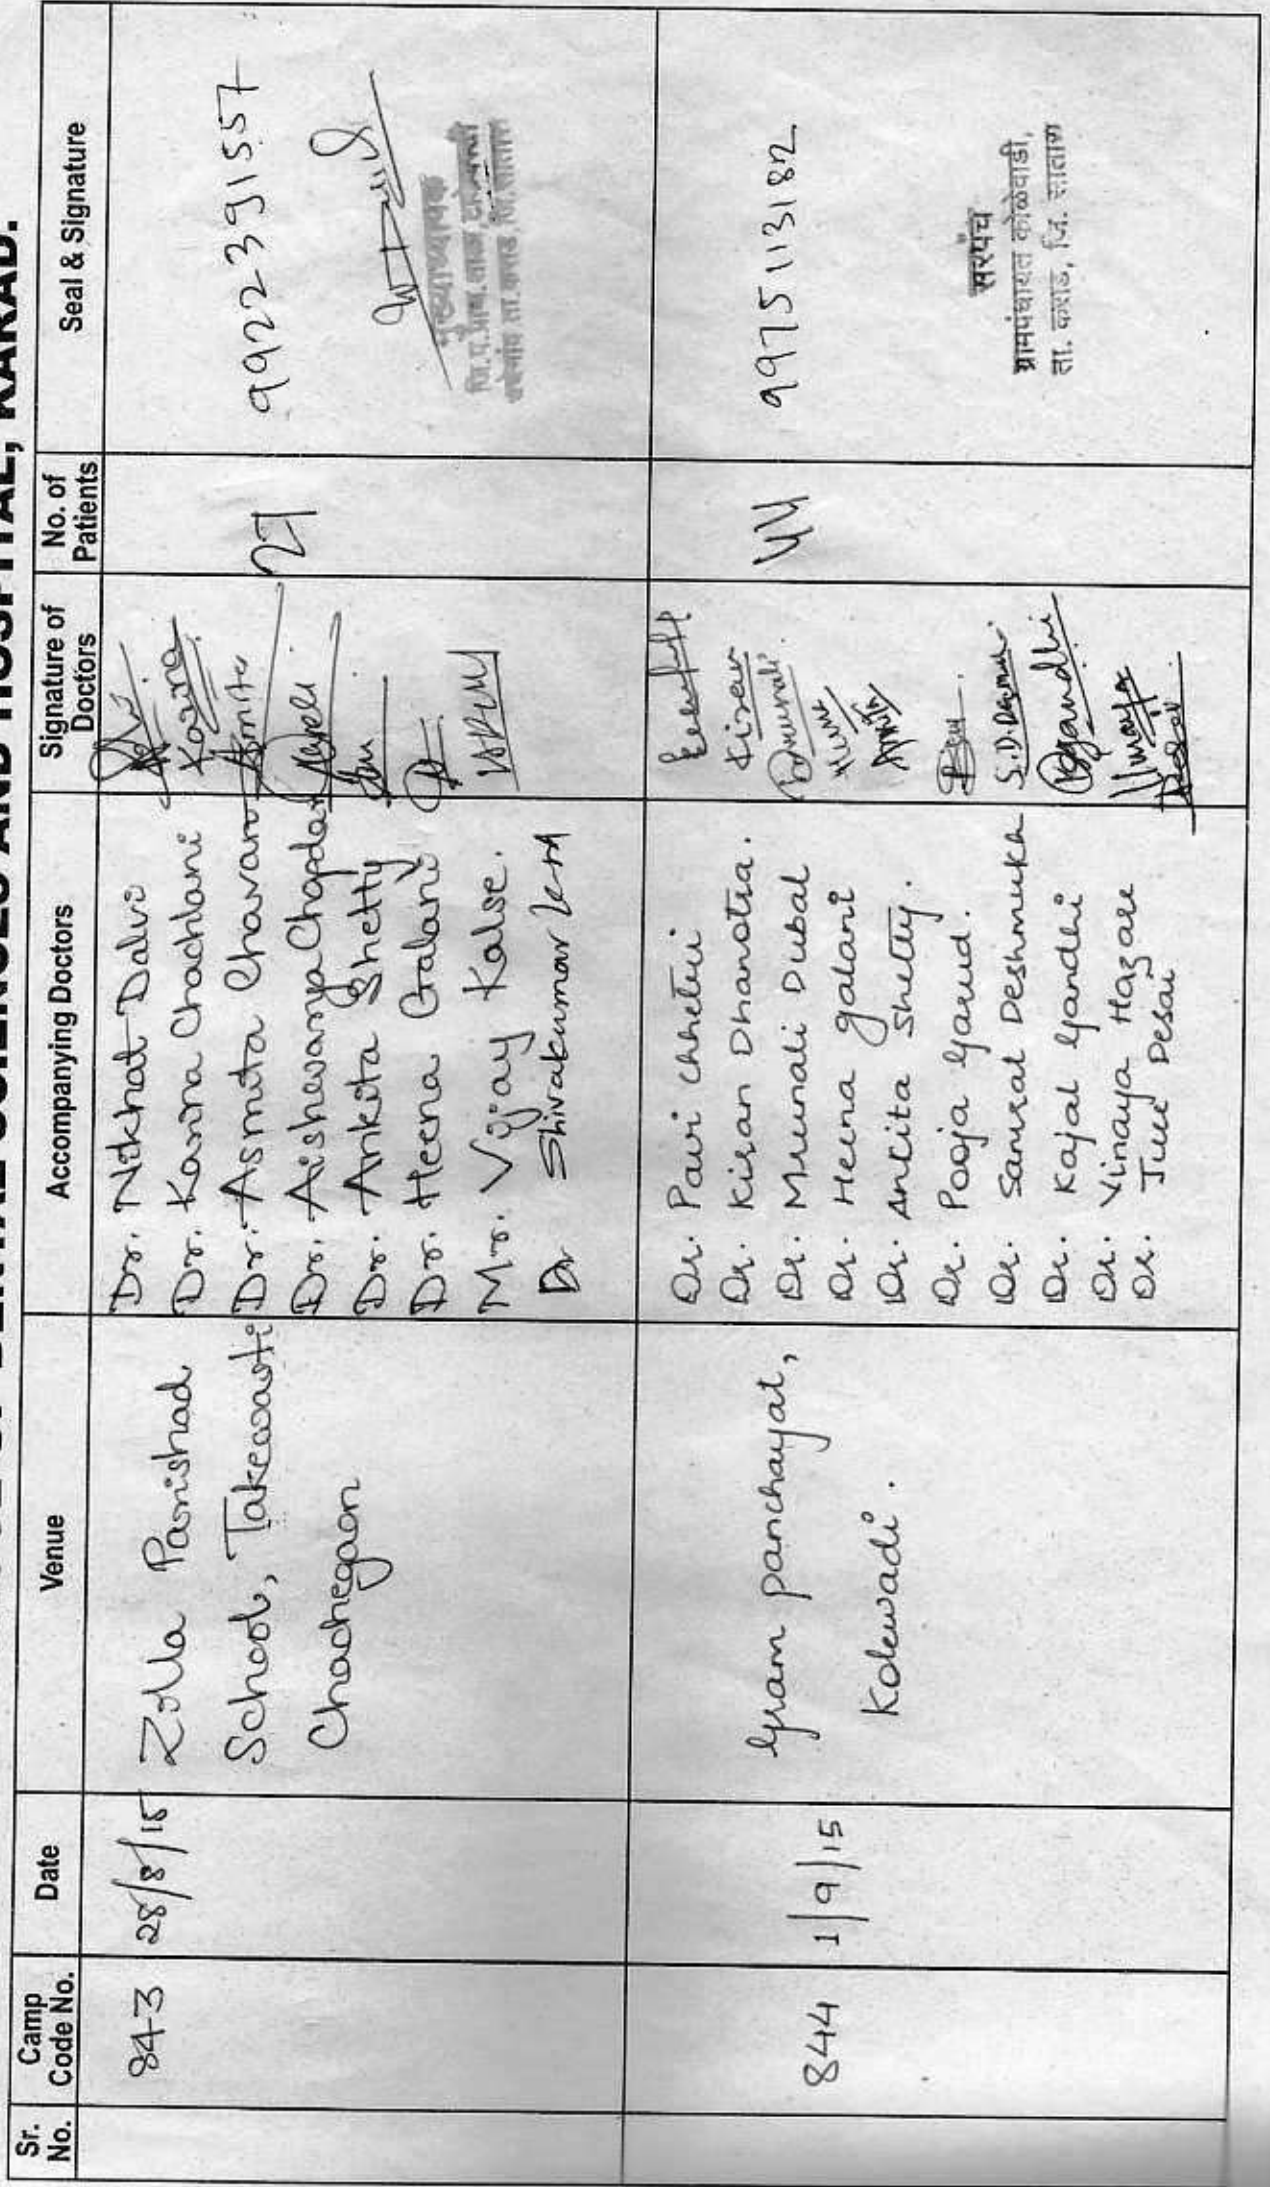 DENTAL SCIENCES AND HOSPITAL, KARAD.
Sr. No.
Camp Code No.
Date
Venue
Accompanying Doctors
Signature of Doctors
No. of Patients
Seal & Signature
843
28/8/15
Zilla Parishad
School, Takewasti
Chachegaon
Dr. Nikhat Dalvi
Dr. Karina Chachlani
Dr. Asmita Chavan
Dr. Aishwarya Chopdar
Dr. Ankita Shetty
Dr. Heena Galani
Mr. Vijay Kalse.
Dr Shivakumar K M
Karina
Asmita
27
9922391557
मुख्याध्यापक
जि.प.प्राथ.शाळा,
ता.कराड, जि.सातारा
844
1/9/15
Gram panchayat,
Kolewadi.
Dr. Pari Chhetri
Dr. Kiran Dhanotra.
Dr. Mrunali Dubal
Dr. Heena Galani
Dr. Ankita Shetty.
Dr. Pooja Garud.
Dr. Sanural Deshmukh
Dr. Kajal Gandhi
Dr. Vinaya Hazare
Dr. Jui Desai
Kiran
Ankita
S.D.Deshmukh.
KGandhi
Vinaya
44
9975113182
सरपंच
ग्रामपंचायत कोळेवाडी,
ता. कराड, जि. सातारा